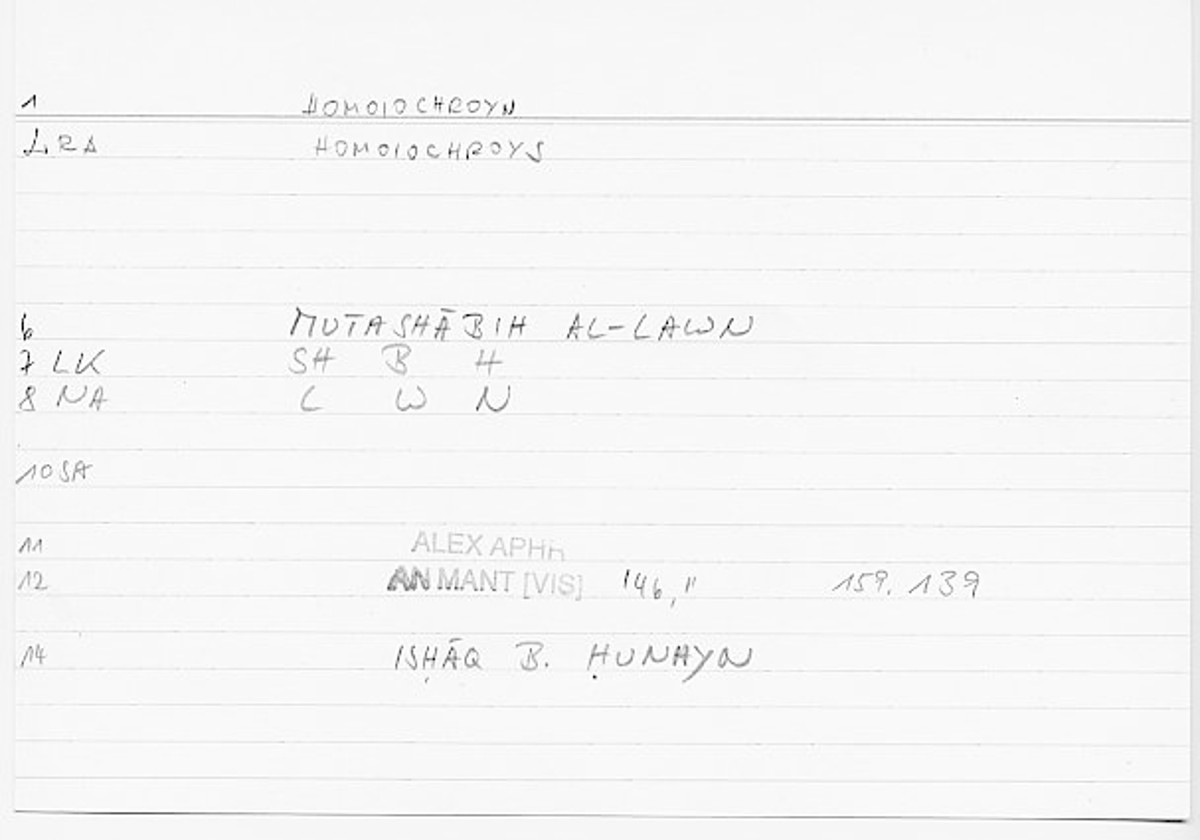 1 HOMOIOCHROYN
LRA HOMOIOCHROYS
6 MUTASHĀBIH AL-LAWN
7 LK SH B H
8 NA L W N
10 SA
11 ALEX APHR
12 AN MANT [VIS] 146,11 159.139
14 ISḤĀQ B. ḤUNAYN